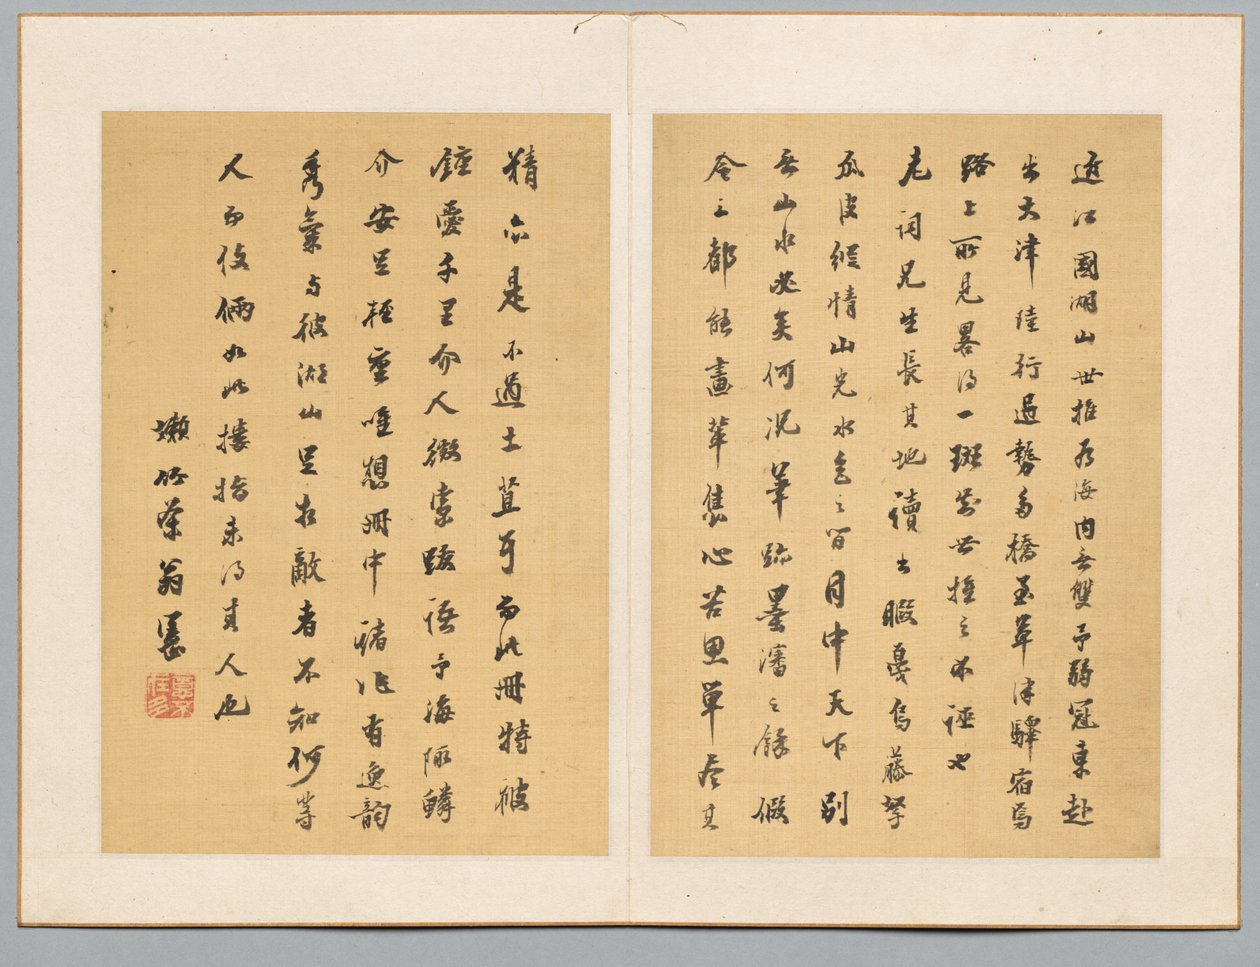 近江國湖山世推為海内無雙予弱冠東赴
出大津陸行過勢多橋至草津驛宿焉
路上所見畧得一斑前世推之不誣也
凡詞兄生長其地讀書暇曳烏藤拏
瓜皮縱情山光水色之間目中天下別
無山水必矣何況筆跡墨瀋之餘假
令之都能畫輩雋心苦思單岑其
精亦是不過土苴耳而此冊特彼
鍾愛子呈介人微索題語予海陬鱗
介安足輕重唯想冊中諸作有逸韵
秀氣与彼湖山足相敵者不知何等
人而伎倆如此摟指未得其人也
嬾竹葊翁